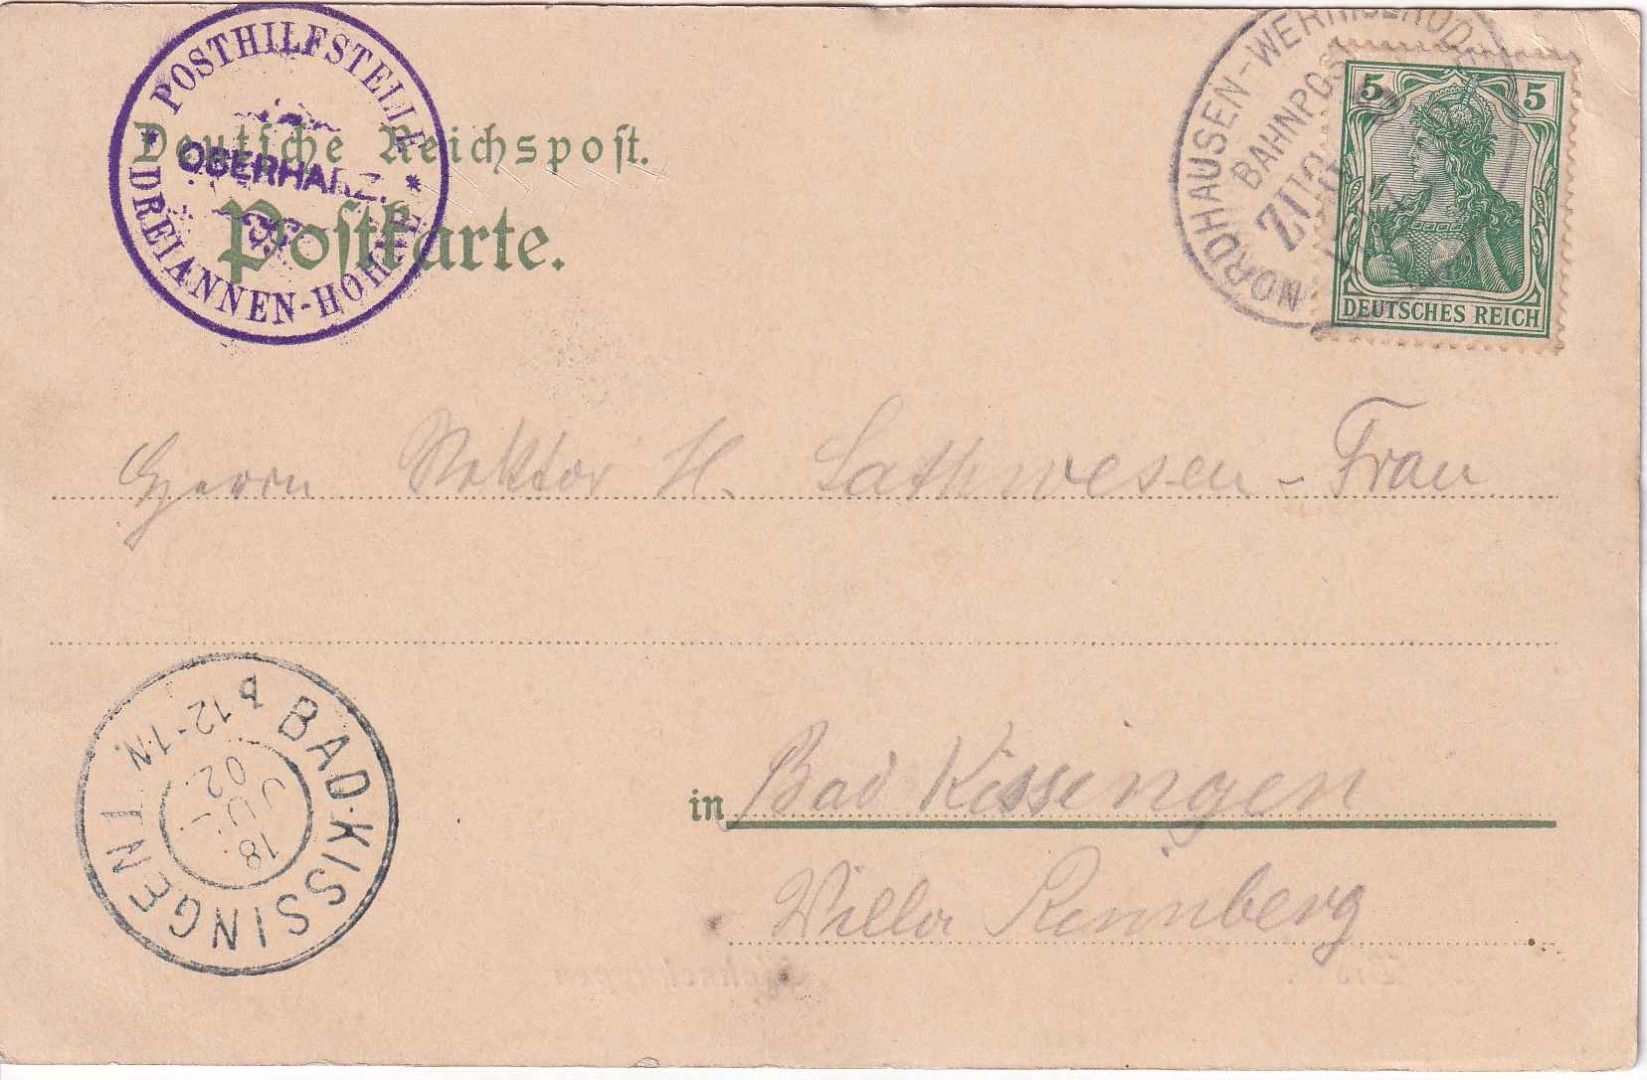 POSTHILFSTELLE
OBERHARZ.
DREIANNEN-HOHNE
Deutsche Reichspost.
Postkarte.
NORDHAUSEN-WERNIGERODE
BAHNPOST
ZUG
5 5
DEUTSCHES REICH
Herrn Rektor H. Lathwesen - Frau
in Bad Kissingen
Villa Rennberg
BAD-KISSINGEN 1
12-1.N.
18.
JUL
02.